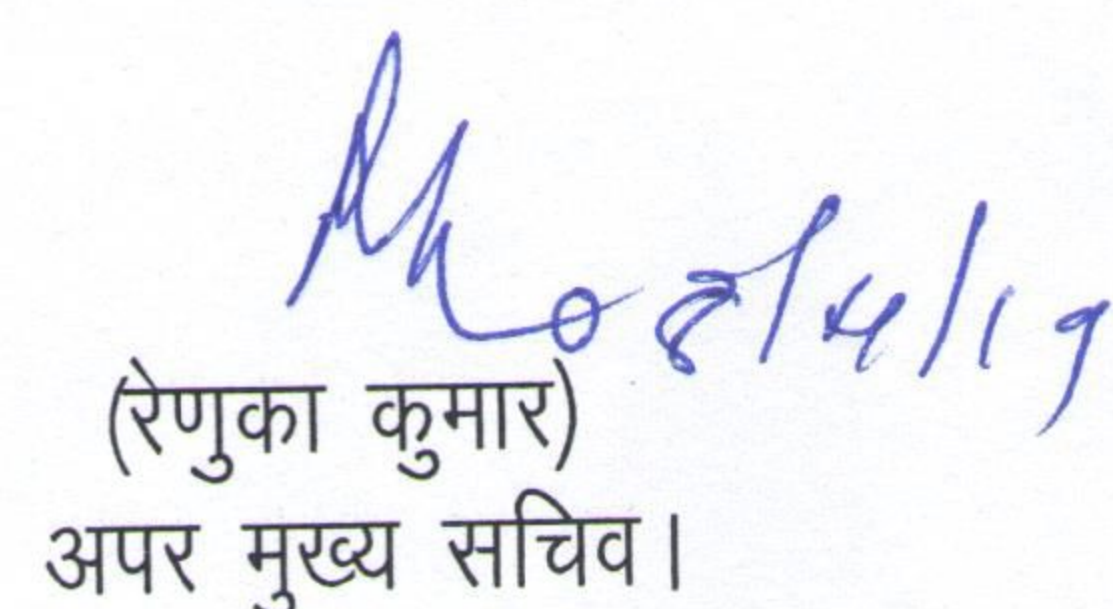 8/4/19
(रेणुका कुमार)
अपर मुख्य सचिव।